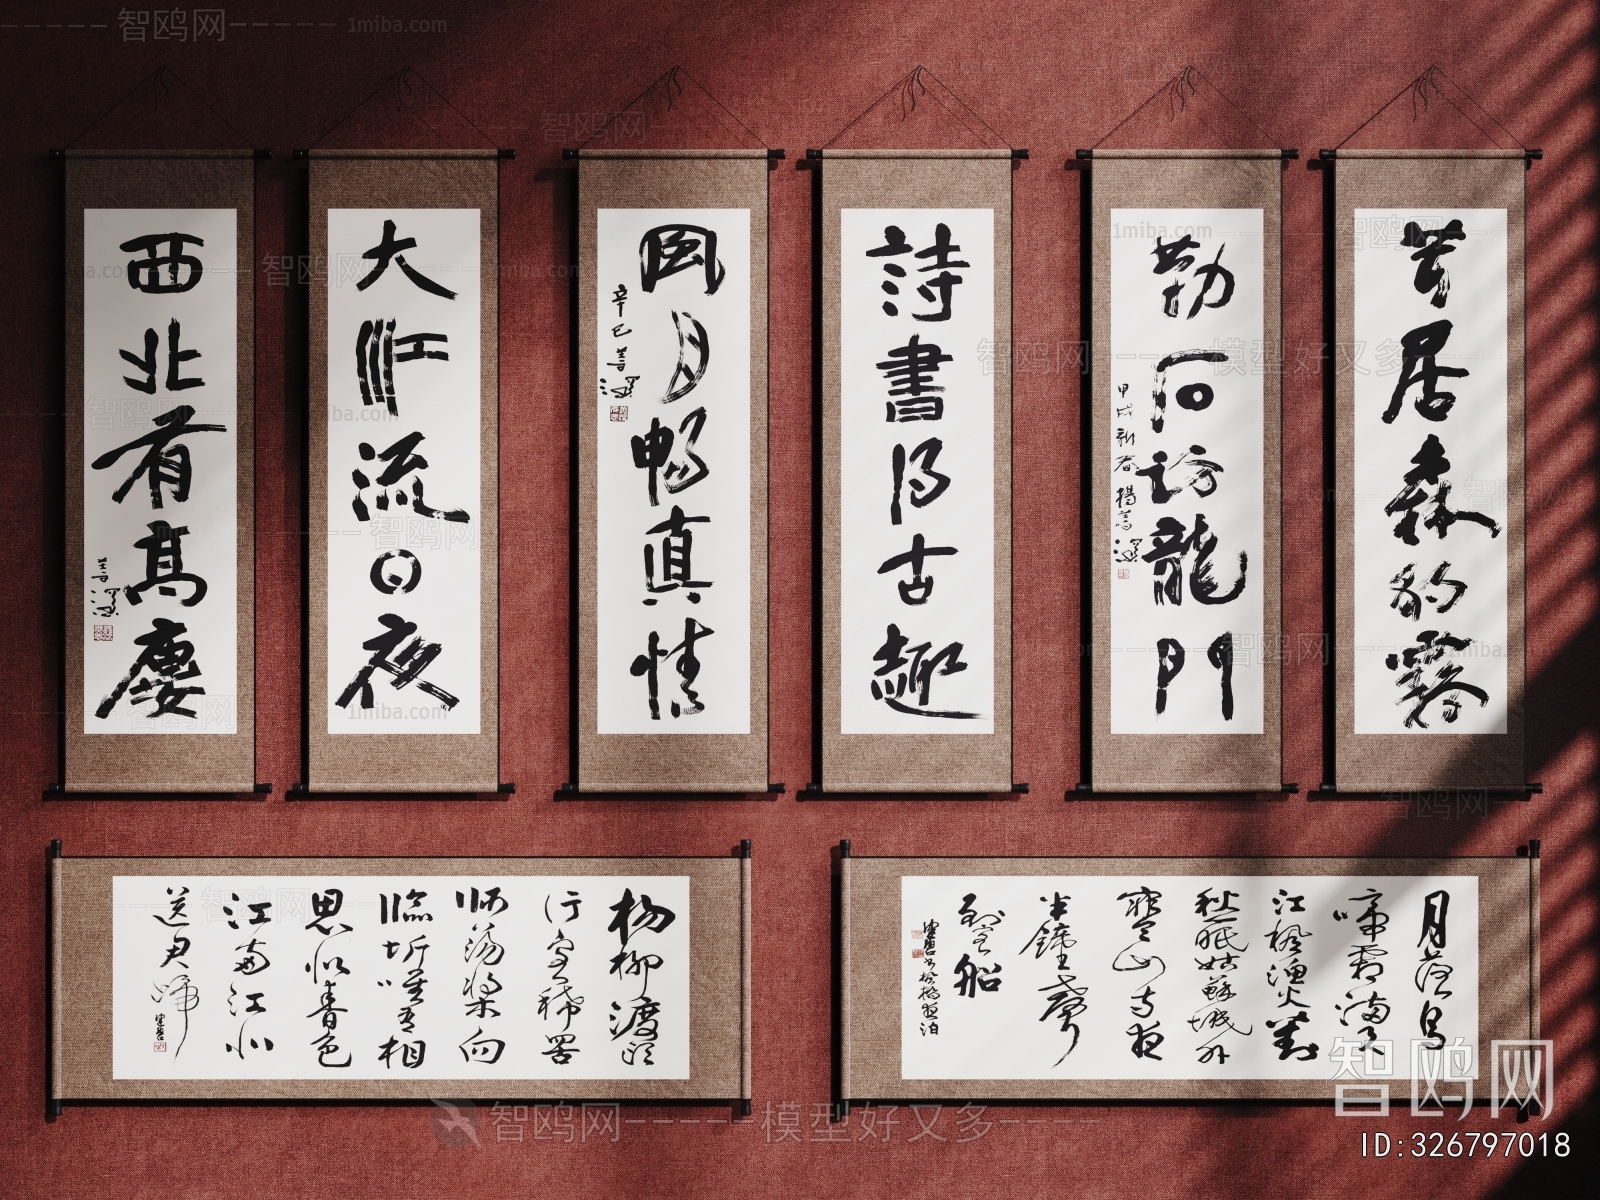 智鸥网
1miba.com
西北有高樓
大江流日夜
風月暢真情
辛巳
詩書得古趣
勒石訪龍門
甲戌新春
昔居森豹霧
楊柳渡頭
行客稀罟
師蕩槳向
臨圻唯有相
思似春色
江南江北
送君歸
月落烏
啼霜滿天
江楓漁火對
愁眠姑蘇城外
寒山寺夜
半鐘聲
到客船
楓橋夜泊
智鸥网-----模型好又多----
智鸥网
ID:326797018